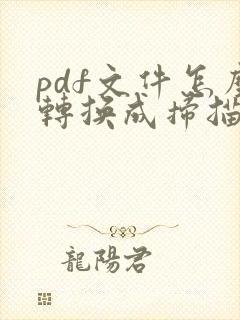 pdf文件怎麼
轉換成掃描
龍陽君